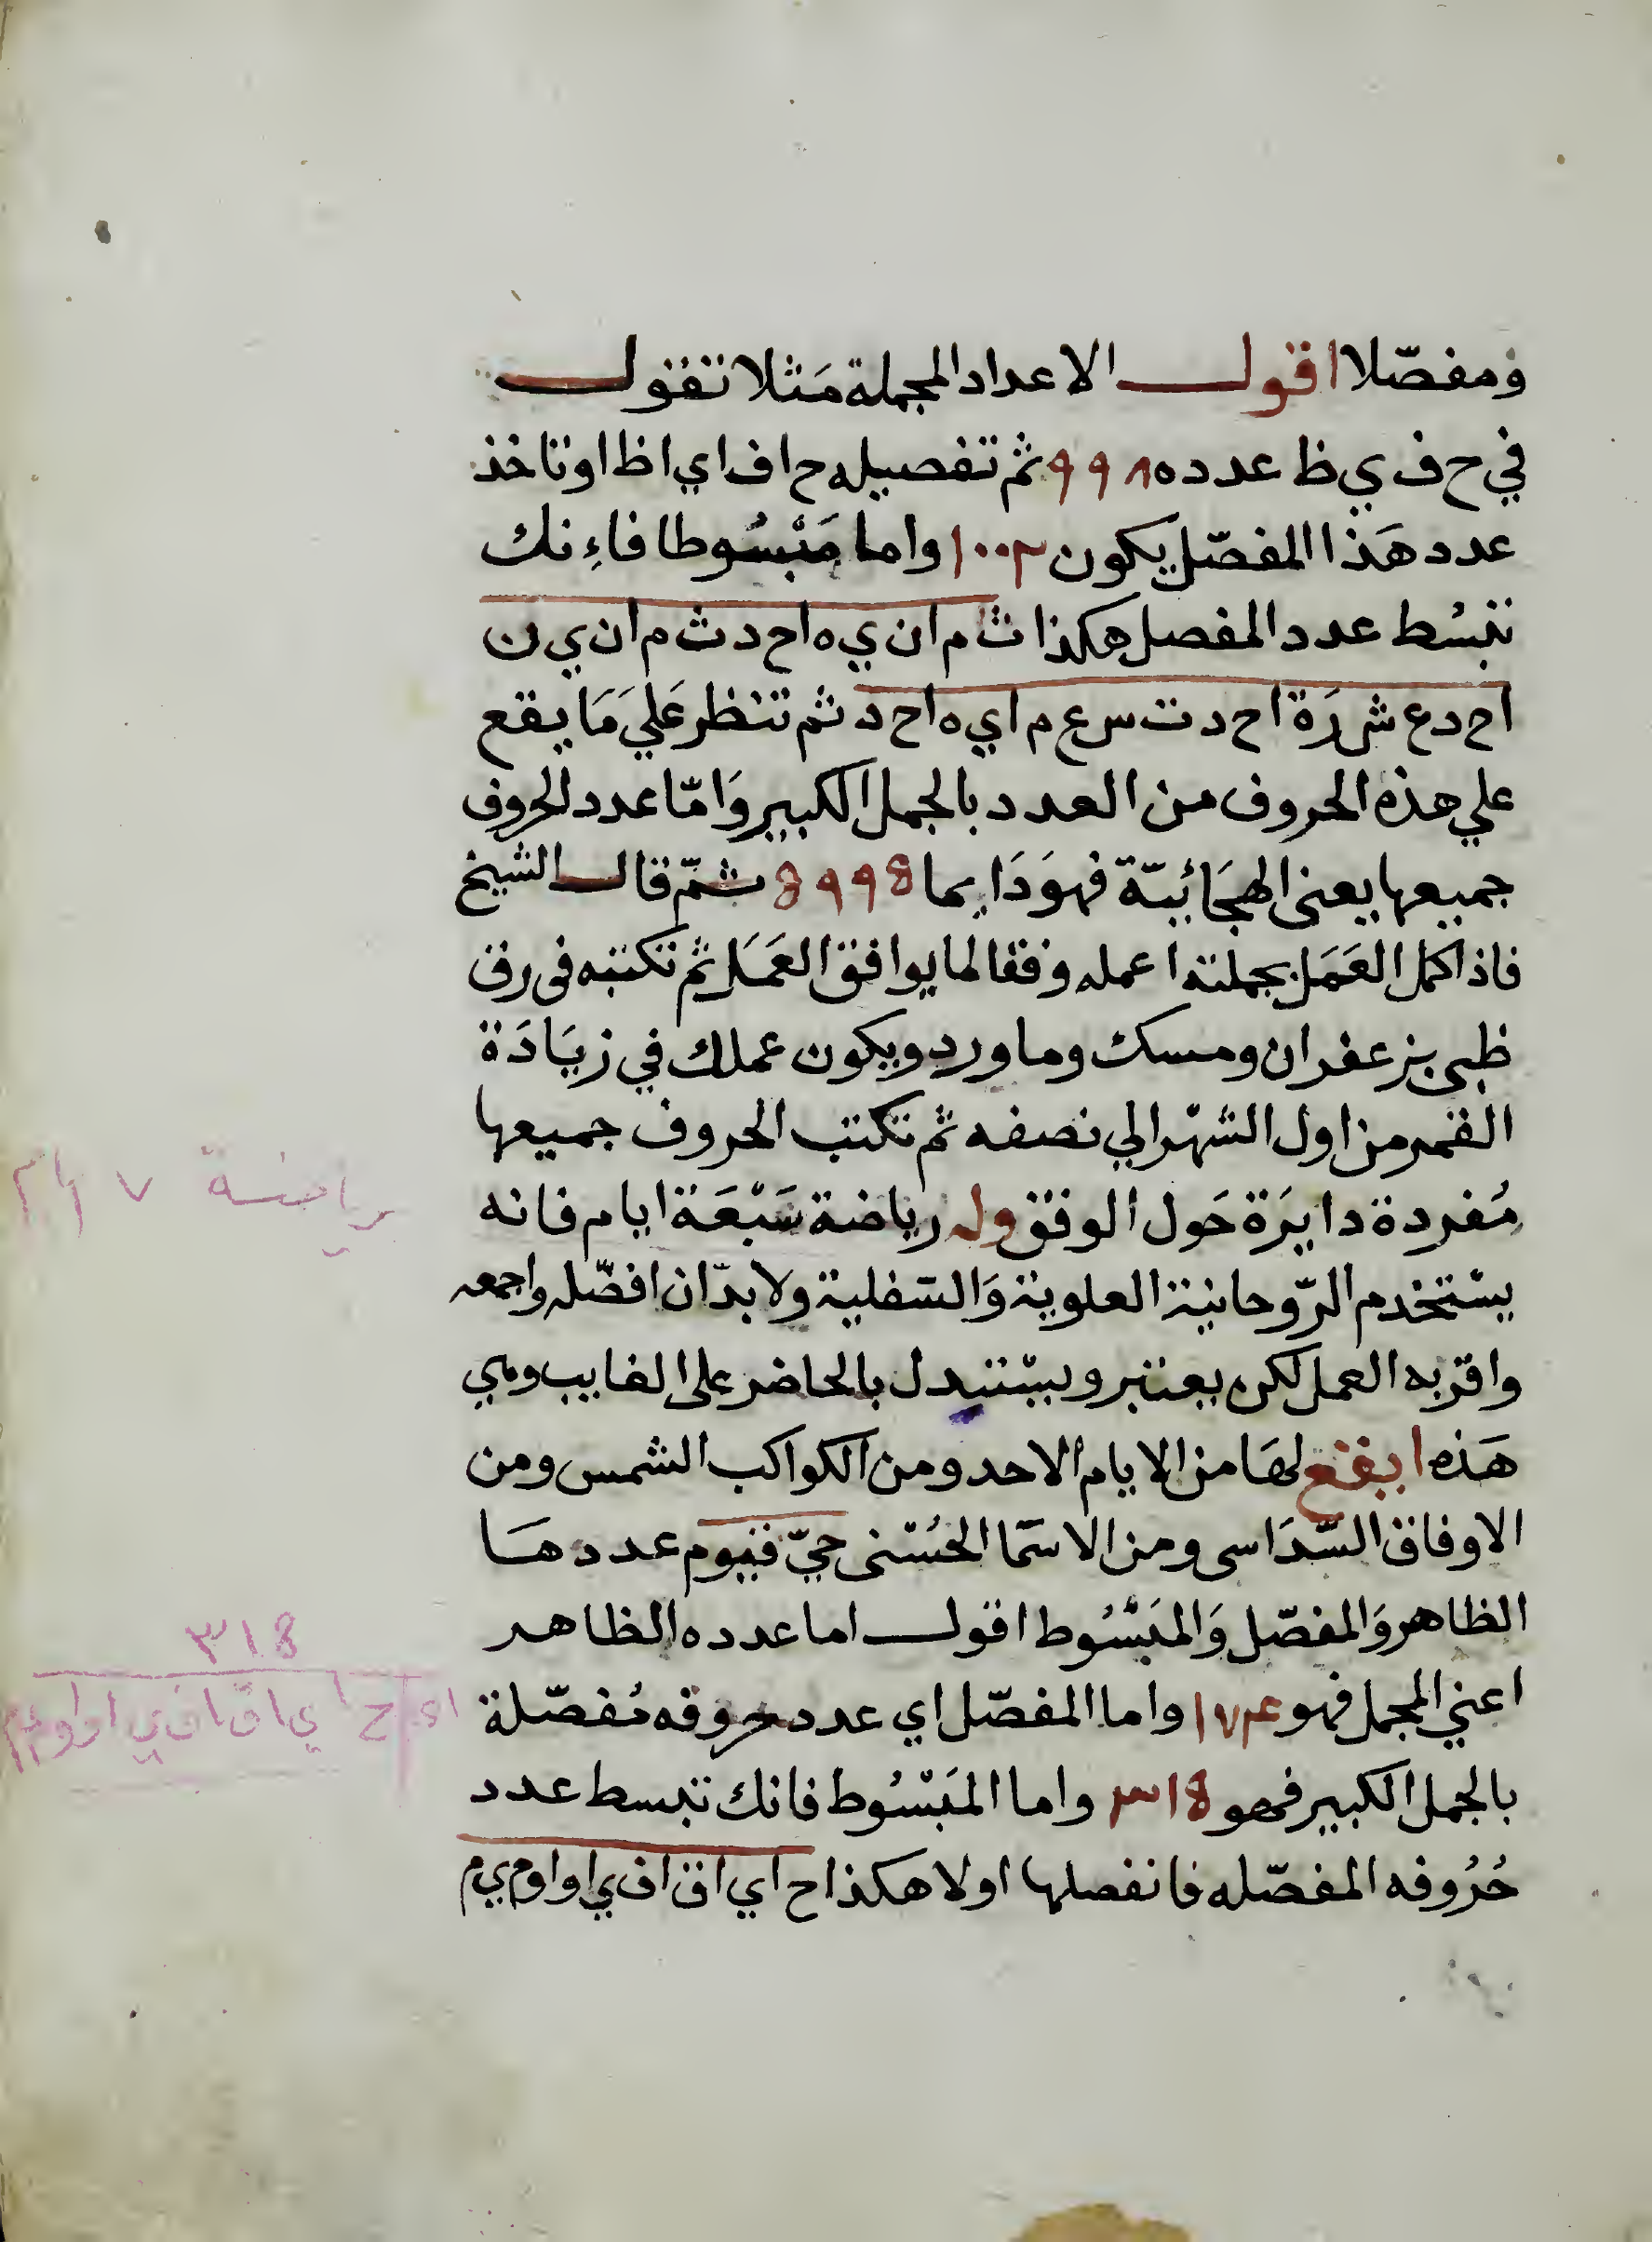 ومفصّلا اقول الاعداد المجملة مَثلا تقول
في ح ف ي ظ عدده ٩٩٨ ثم تفصيله ح ا ف ا ي ا ظ ا و تاخذ
عدد هَذا المفصّل يكون ١٠٠٢ واما مَبْسُوطا فاءِنك
تبسُط عدد المفصل هكذا ث م ا ن ي ه ا ح د ث م ا ن ي ن
ا ح د ع ش رَ ة ا ح د ت س ع م ا ي ه ا ح د ثم تنظر عَليَ مَا يقع
علي هذه الحروف من العدد بالجمل الكبير وَامّا عدد الحروف
جميعها يعني الهجَائيّة فهوَ دَايما ٥٩٩٥ ثمّ قال الشيخ
فاذا كمل العَمَل بجملته اعمله وفقا لما يوافق العَمَل ثم تكتبه في رق
ظبي بزعفران ومسك وماورد ويكون عملك في زيَادَة
القمر من اول الشهر الي نصفه ثم تكتب الحروف جميعها
مُفردة دايرَة حَول الوفق وله رياضة سَبْعَة ايام فانه
يسْتخدم الرّوحانية العلوية وَالسّفلية ولابدّ ان افصّله واجمعه
واقرّبه العمل لكن يعتبر ويسْتبدل بالحاضر علي الغايب وهي
هَذه ا ي ق غ لهَا من الايام الاحد ومن الكواكب الشمس ومن
الاوفاق السّدَاسي ومن الاسمَا الحُسْني حيّ قيوم عددهَا
الظاهر وَالمفصّل وَالمَبْسُوط اقول اما عدده الظاهر
اعني المجمل فهو ١٧٤ واما المفصّل اي عدد حروفه مُفصّلة
بالجمل الكبير فهو ٣١٥ واما المَبْسُوط فانك تبسط عدد
حُرُوفه المفصّله فانفصلها اولا هكذا ح ا ي ا ق ا ف ي ا و ا و م ي م
رياضة ٧ ايام
٣١٥